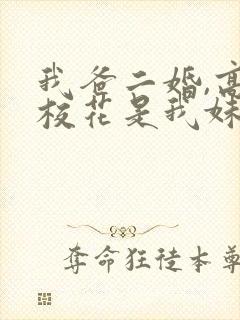 我爸二婚,高
校花是我妹
奪命狂徒本尊